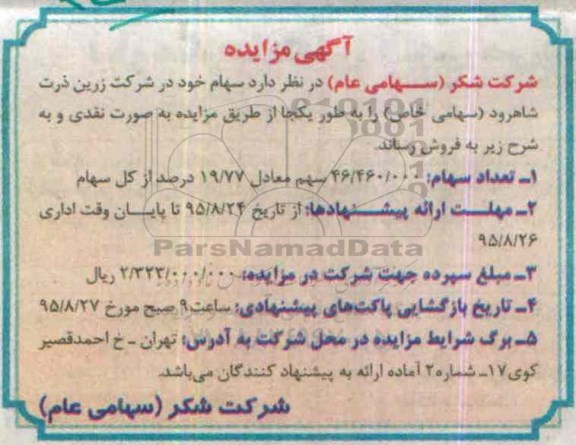 آگهی مزایده
شرکت شکر (سهامی عام) در نظر دارد سهام خود در شرکت زرین ذرت
شاهرود (سهامی خاص) را به طور یکجا از طریق مزایده به صورت نقدی و به
شرح زیر به فروش رساند.
۱ـ تعداد سهام: ۴۶/۴۶۰/۰۰۰ سهم معادل ۱۹/۷۷ درصد از کل سهام
۲ـ مهلت ارائه پیشنهادها: از تاریخ ۹۵/۸/۲۴ تا پایان وقت اداری
۹۵/۸/۲۶
ParsNamadData
۳ـ مبلغ سپرده جهت شرکت در مزایده: ۲/۳۲۳/۰۰۰/۰۰۰ ریال
۴ـ تاریخ بازگشایی پاکت‌های پیشنهادی: ساعت ۹ صبح مورخ ۹۵/۸/۲۷
۵ـ برگ شرایط مزایده در محل شرکت به آدرس: تهران ـ خ احمدقصیر
کوی ۱۷ـ شماره ۲ آماده ارائه به پیشنهاد کنندگان می‌باشد.
شرکت شکر (سهامی عام)